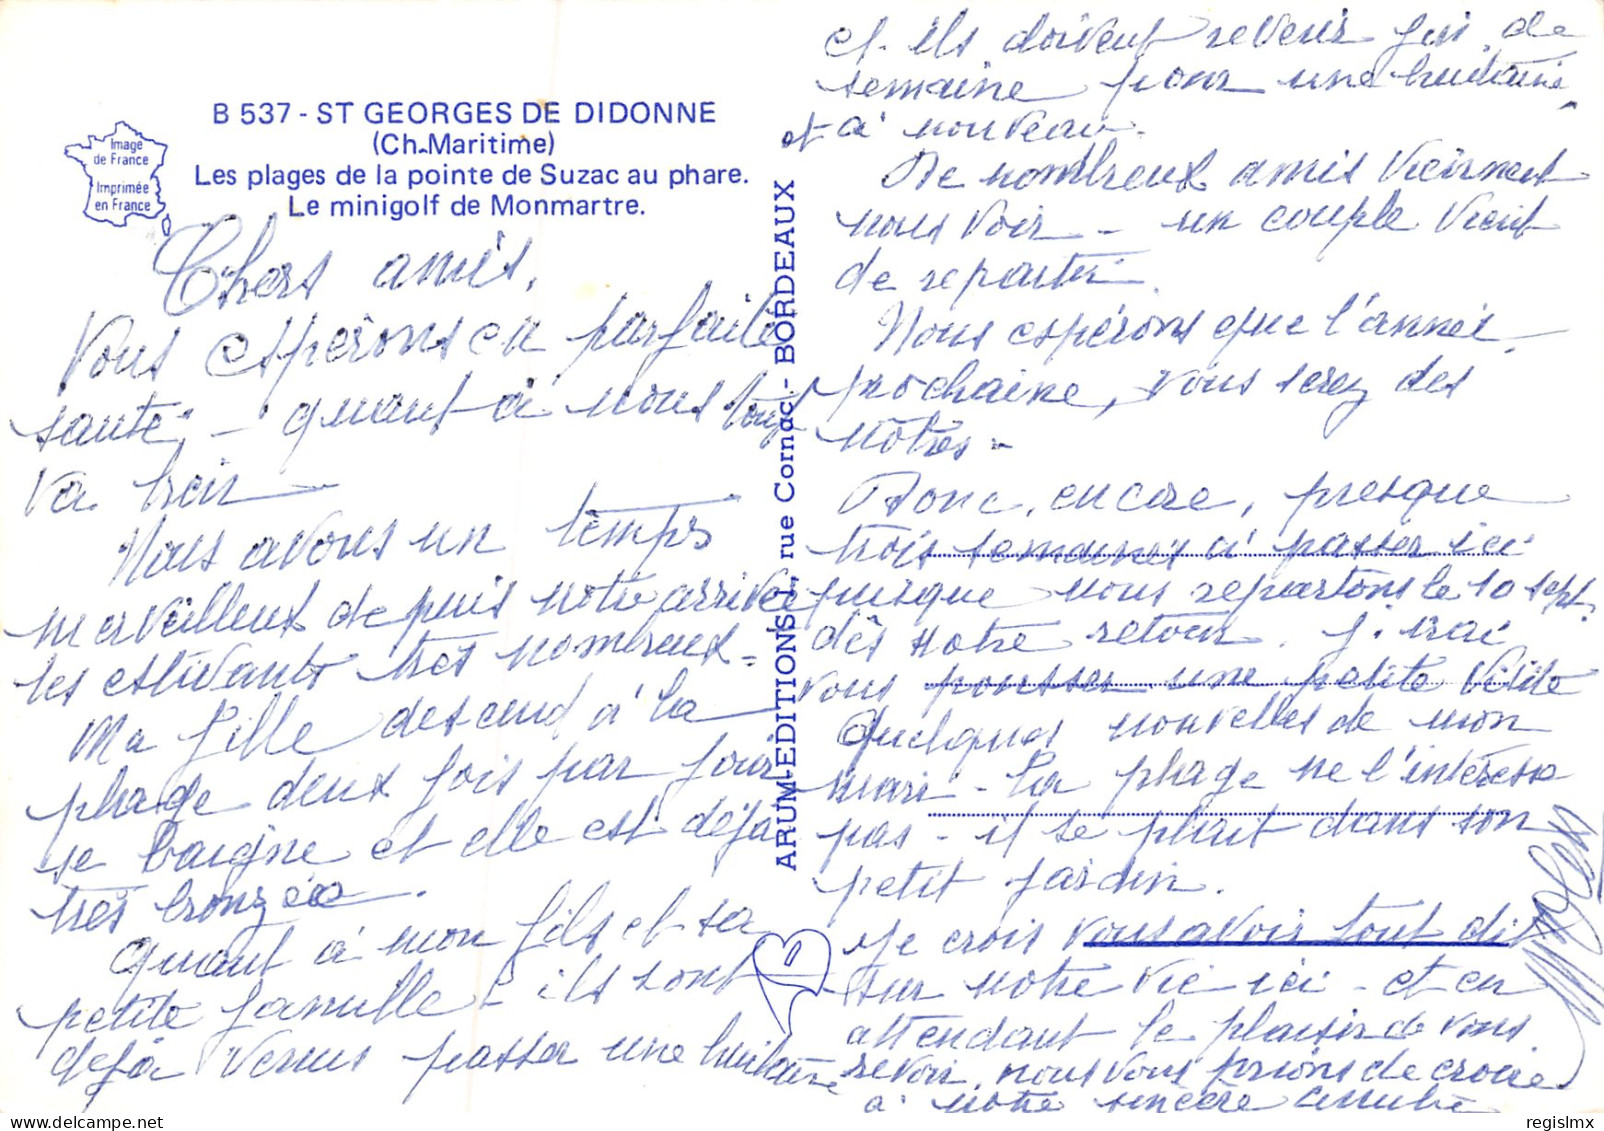 B 537 - ST GEORGES DE DIDONNE
(Ch-Maritime)
Les plages de la pointe de Suzac au phare.
Le minigolf de Monmartre.
Image
de France
Imprimée
en France
ARUM-EDITIONS 1, rue Cornac - BORDEAUX
Chers amis,
Vous espérons en parfaite
santé, - quant à nous tout
va bien
Nous avons un temps
merveilleux depuis notre arrivée
les estivants très nombreux -
Ma fille descend à la
plage deux fois par jour
se baigne et elle est déjà
très bronzée.
Quant à mon fils et sa
petite famille - ils sont
déjà venus passer une huitaine
et ils doivent revenir fin de
semaine pour une huitaine
et à nouveau.
De nombreux amis viennent
nous voir - un couple vient
de repartir.
Nous espérons que l'année
prochaine, vous serez des
nôtres -
Donc, encore, presque
trois semaines à passer ici
puisque nous repartons le 10 sept.
dès notre retour. J'irai
vous pousser une petite visite
Quelques nouvelles de mon
mari - La plage ne l'intéresse
pas - il se plait dans son
petit jardin.
Je crois vous avoir tout dit
sur notre vie ici - et en
attendant le plaisir de vous
revoir, nous vous prions de croire
à notre sincère amitié
regislmx